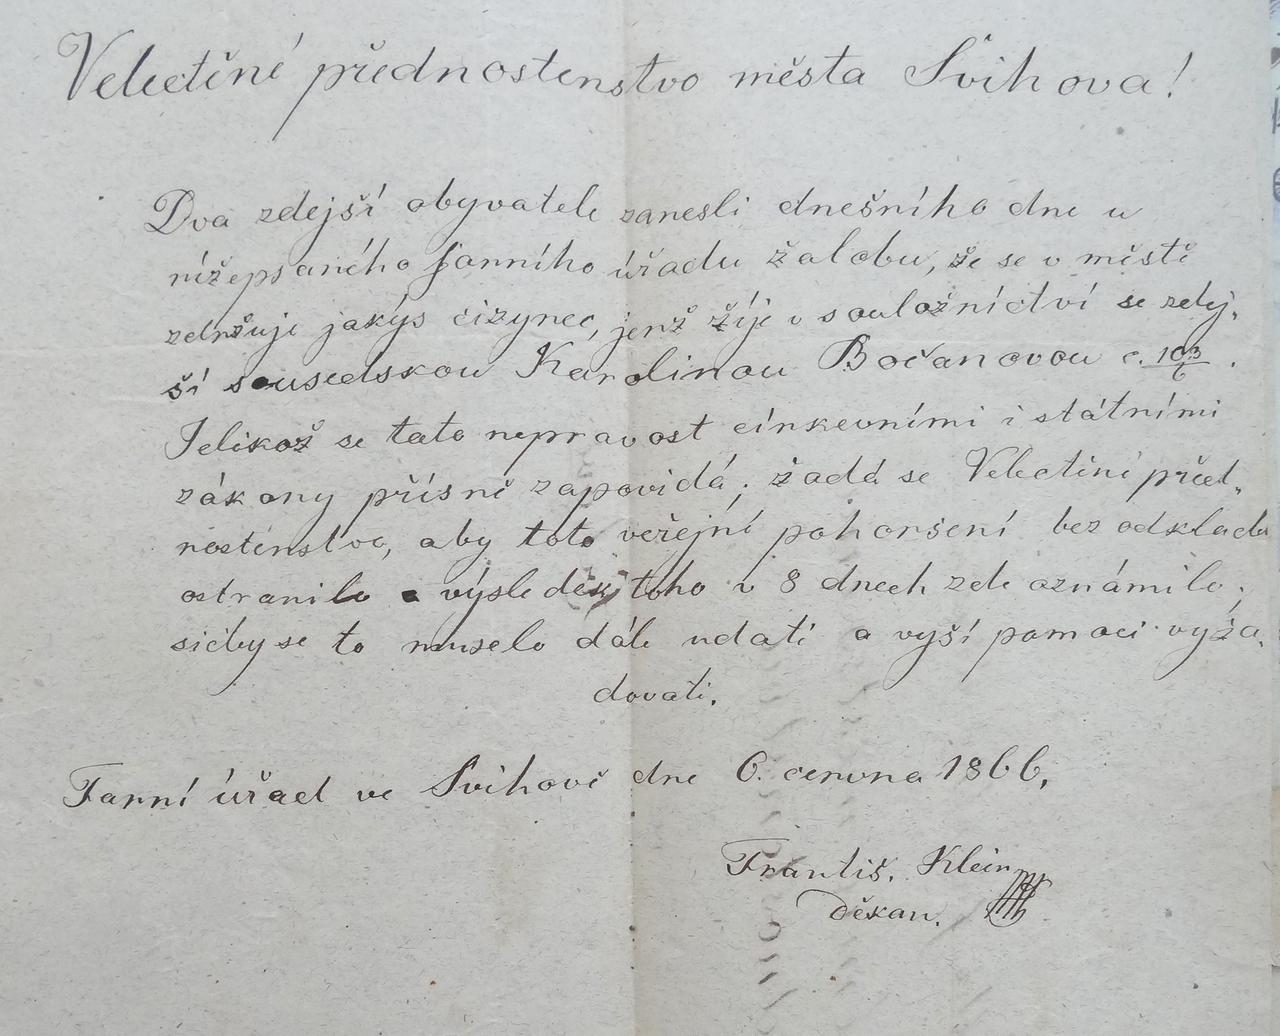 Velectěné přednostenstvo města Švihova!
Dva zdejší obyvatele zanesli dnešního dne u
nížepsaného farního úřadu žalobu, že se v městě
zdržuje jakýs cizynec, jenž žije v souložnictví se zdej-
ší sousedskou Karolinou Bočanovou č.
Jelikož se tato nepravost církevními i státními
zákony přísně zapovidá; žadá se Velectěné před-
nostenstvo, aby toto veřejní pohoršení bez odkladu
ostranilo a výsledek toho v 8 dnech zde oznámilo,
sicby se to muselo dále udati a vyší pomoci vyža-
dovati.
Farní úřad ve Švihově dne 6. června 1866.
Františ. Klein
děkan.